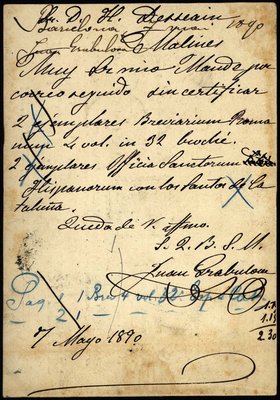 Sr. D. H. Dessain
Barcelona 1890
Juan Grabulosa Malines
Muy Sr mio Mande por
correo seguido sin certificar
2 ejemplares Breviarium Roma
num 4 vol. in 32 broché.
2 ejemplares Officia Sanctorum
Hispanorum con los Santos de la
taluña.
Queda de V. affmo.
S. Q. B. S. M.
Juan Grabulosa
Paq. 1 1 Brev 4 vol 32
2 1
2 30
7 Mayo 1890